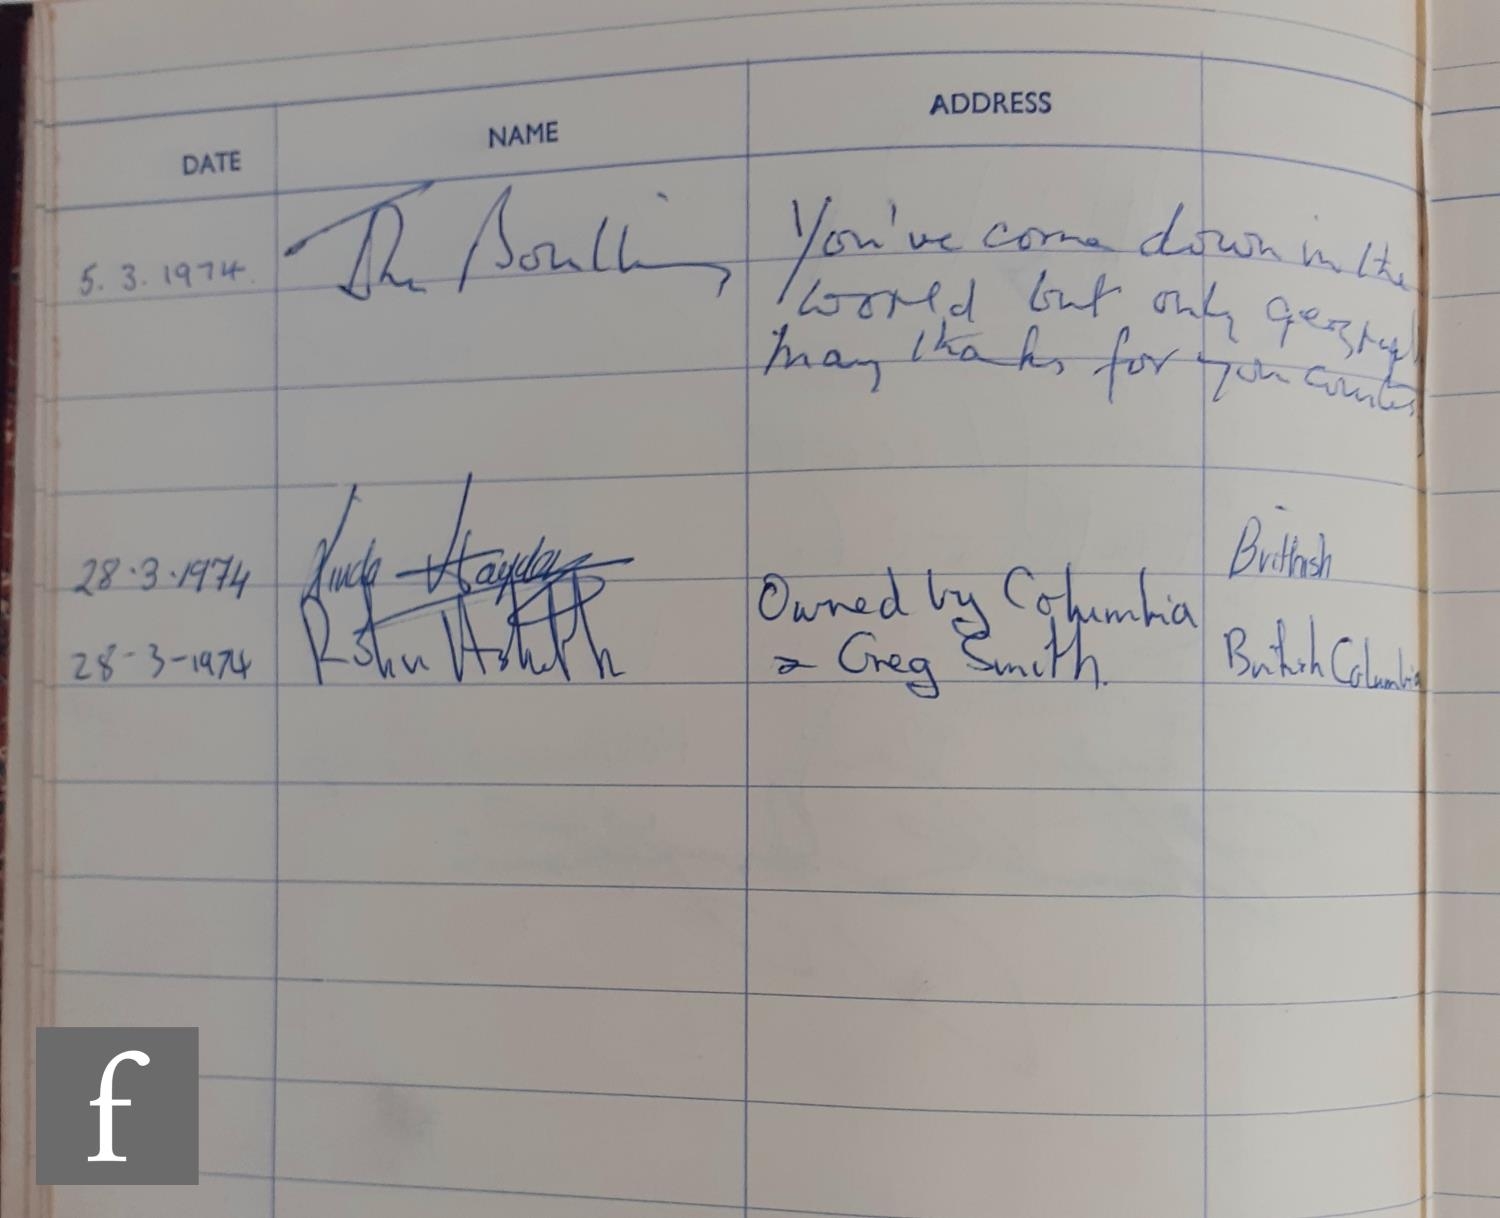 DATE NAME ADDRESS
5.3.1974. John Boulting You've come down in the
world but only
many thanks for your
28.3.1974 Linda Hayden Brittish
28-3-1974 Robin Askwith Owned by Columbia British Columbia
& Greg Smith.
f